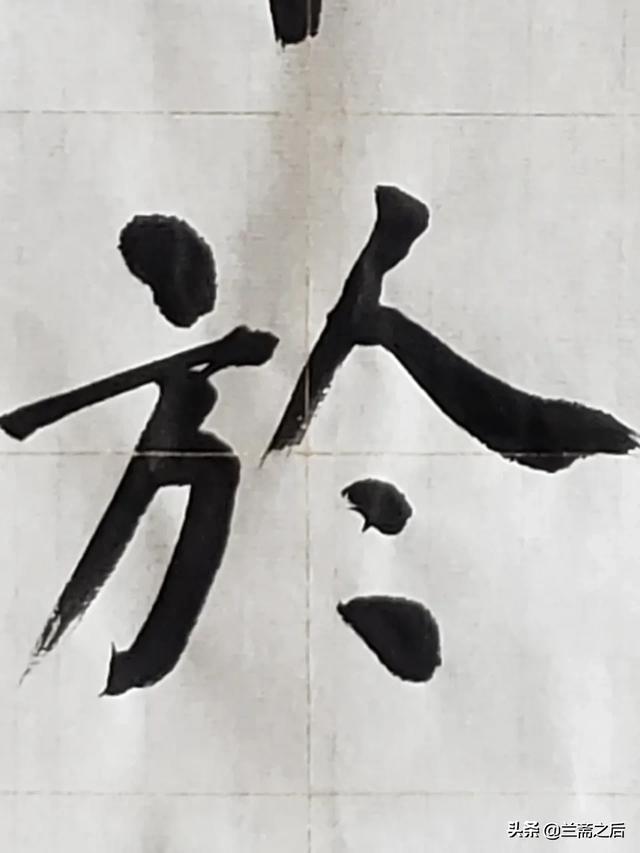 於
头条 @兰斋之后